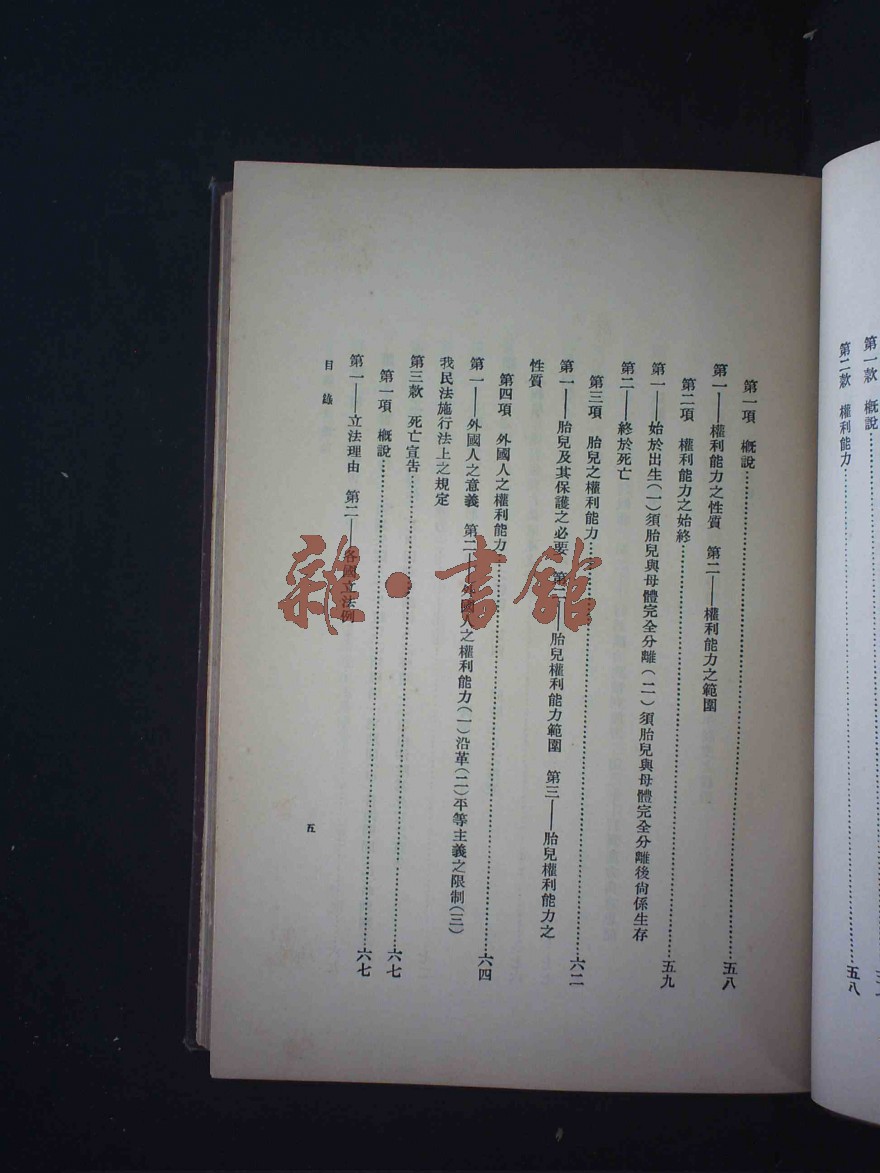 第一款　概說
第二款　權利能力……五八
第一項　概說……五八
第一——權利能力之性質　第二——權利能力之範圍
第二項　權利能力之始終……五九
第一——始於出生(一)須胎兒與母體完全分離(二)須胎兒與母體完全分離後尙係生存
第二——終於死亡
第三項　胎兒之權利能力……六二
第一——胎兒及其保護之必要　第二——胎兒權利能力範圍　第三——胎兒權利能力之
性質
第四項　外國人之權利能力……六四
第一——外國人之意義　第二——外國人之權利能力(一)沿革(二)平等主義之限制(三)
我民法施行法上之規定
第三款　死亡宣告……六七
第一項　概說……六七
第一——立法理由　第二——各國立法例
目錄
五
雜·書館